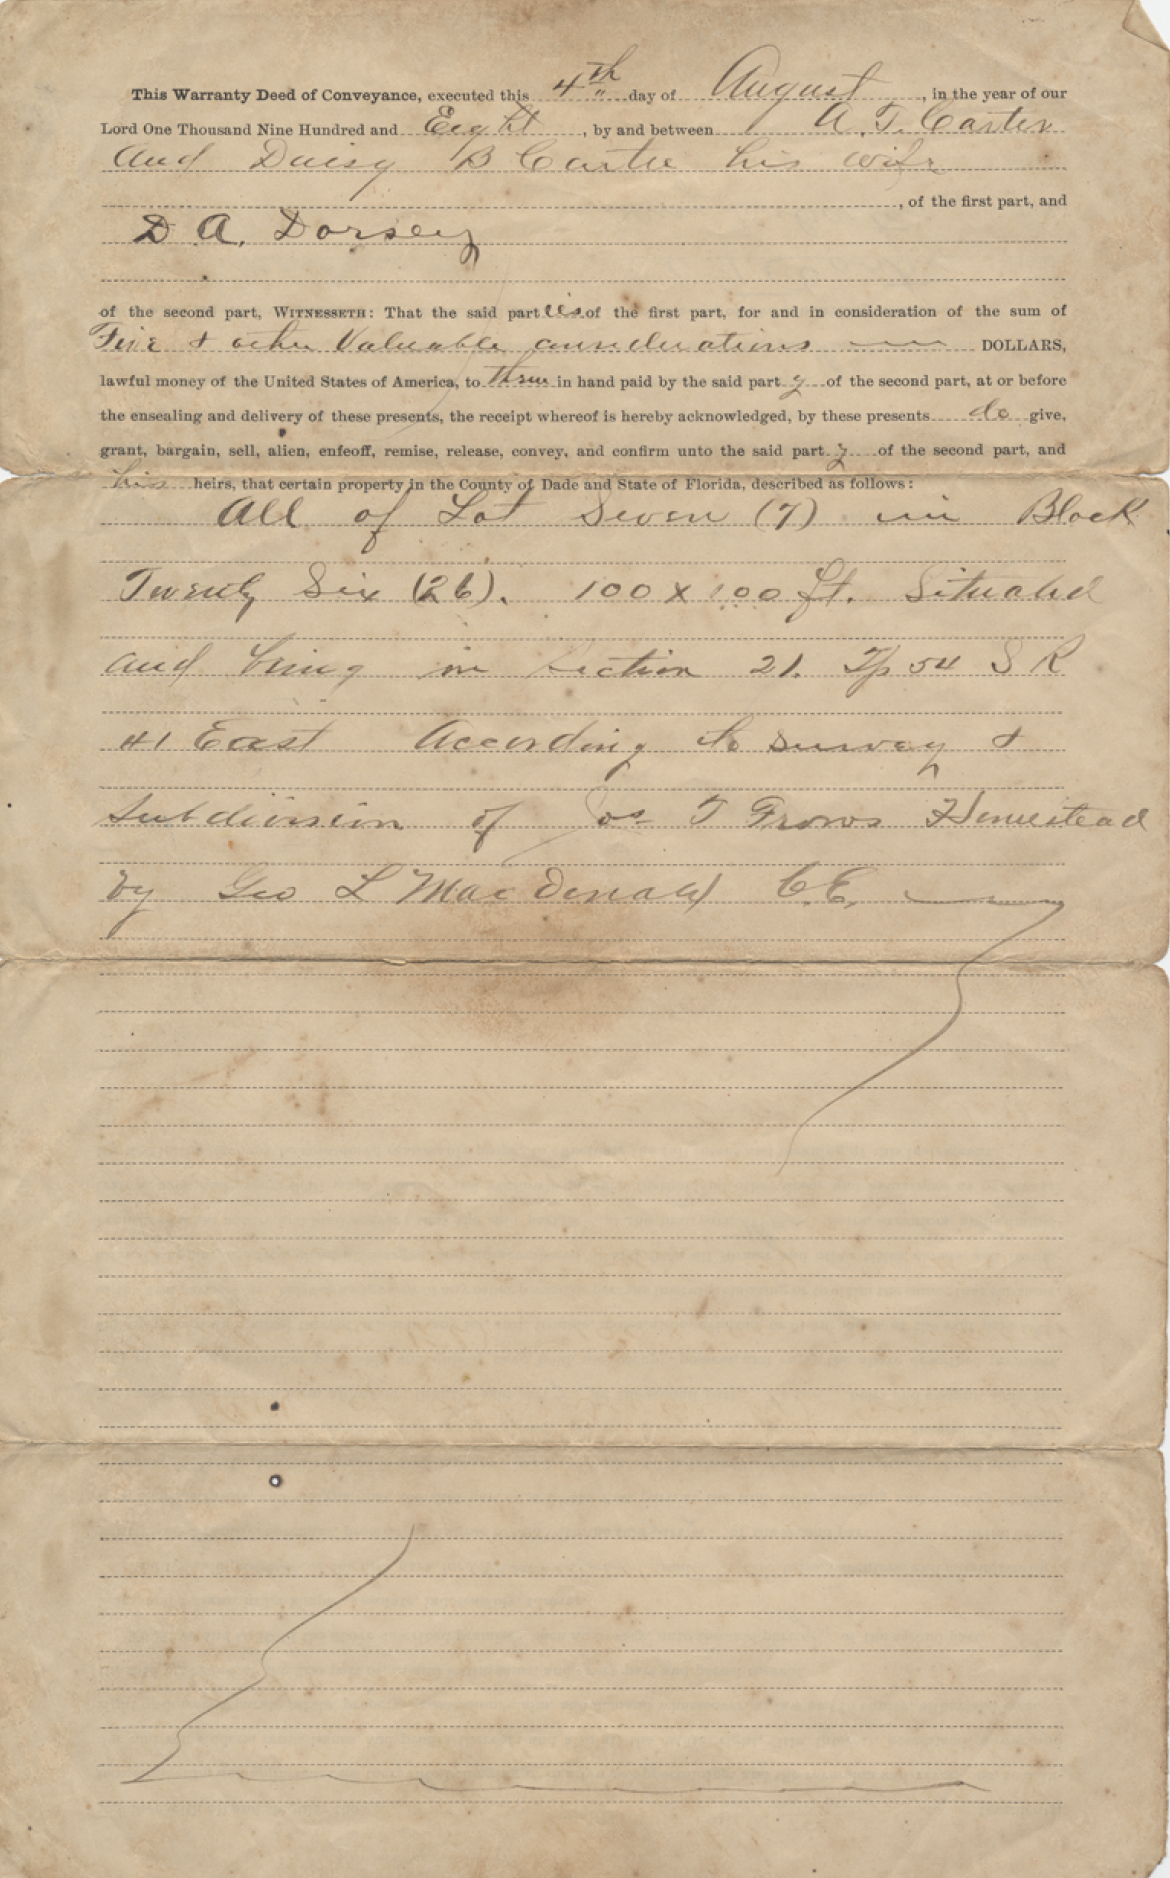 This Warranty Deed of Conveyance, executed this 4th day of August, in the year of our
Lord One Thousand Nine Hundred and Eight, by and between A. T. Carter
and Daisy B Carter his wife
, of the first part, and
D A. Dorsey
of the second part, WITNESSETH: That the said parties of the first part, for and in consideration of the sum of
Five & other Valuable considerations DOLLARS,
lawful money of the United States of America, to them in hand paid by the said party of the second part, at or before
the ensealing and delivery of these presents, the receipt whereof is hereby acknowledged, by these presents do give,
grant, bargain, sell, alien, enfeoff, remise, release, convey, and confirm unto the said party of the second part, and
his heirs, that certain property in the County of Dade and State of Florida, described as follows:
All of Lot Seven (7) in Block
Twenty Six (26). 100 x 100 ft. Situated
and being in Section 21. Tp 54 S R
41 East According to survey &
subdivision of Jos T Frows Homestead
by Geo L MacDonald C.E.